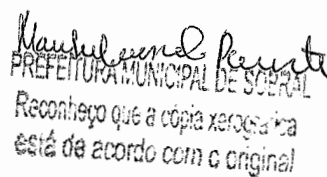 PREFEITURA MUNICIPAL DE SOBRAL
Reconheço que a cópia xerografica
está de acordo com o original